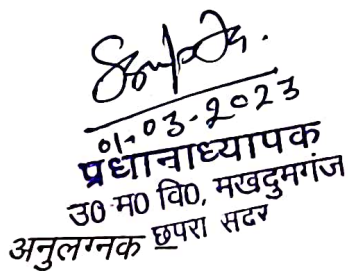 01-03-2023
प्रधानाध्यापक
उ0 म0 वि0, मखदुमगंज
अनुलग्नक छपरा सदर